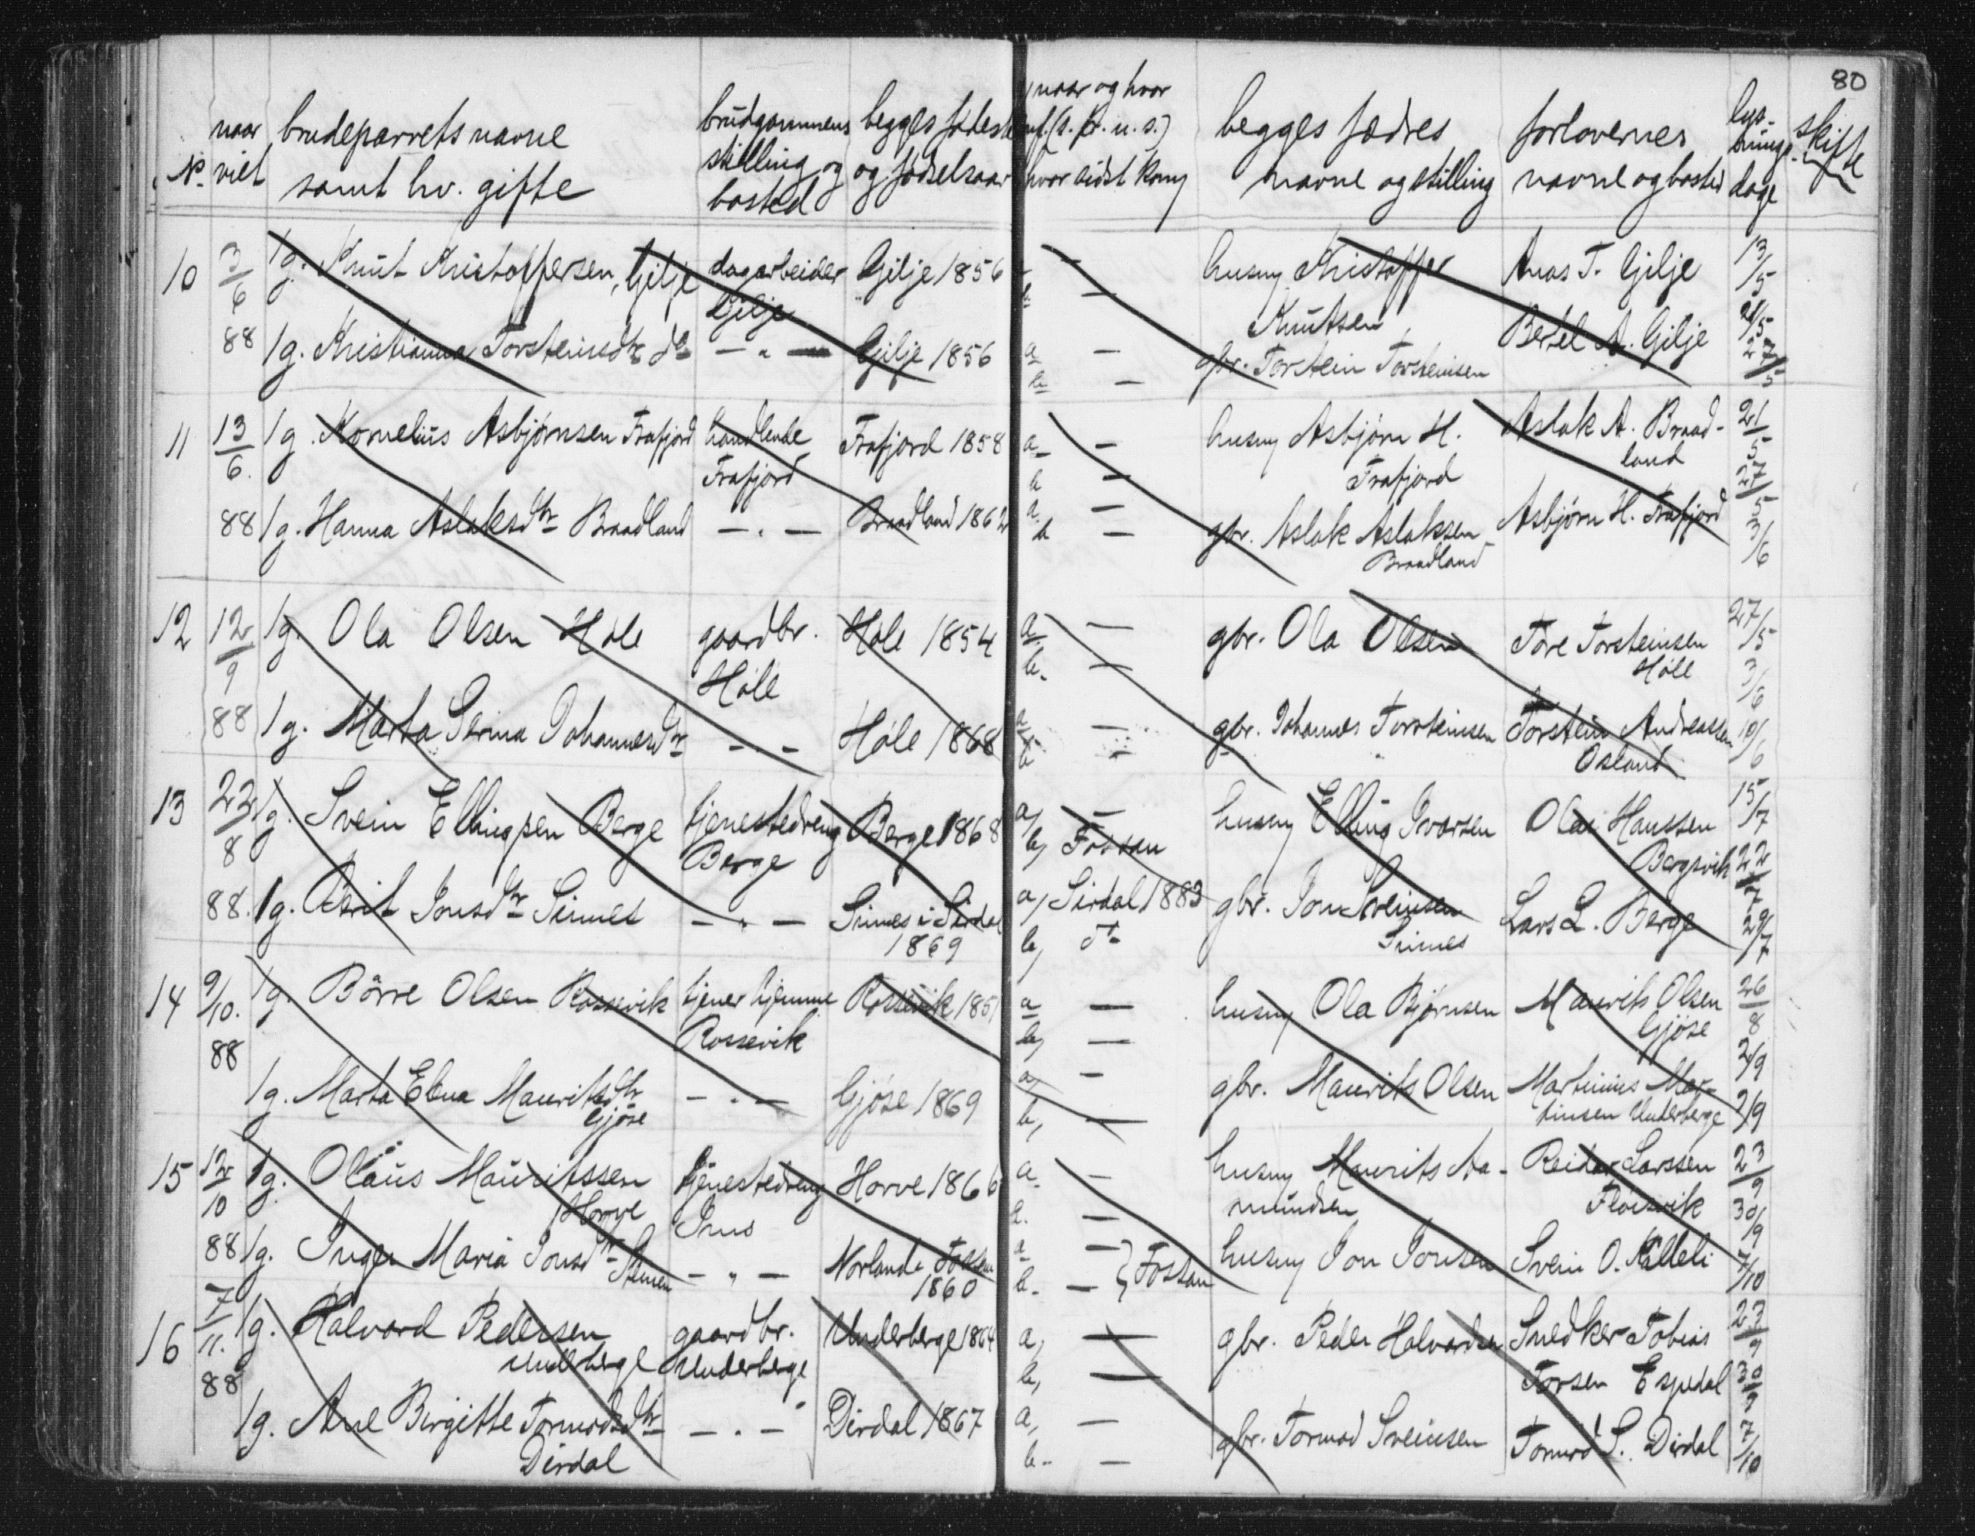 80
No. naar viet
brudeparrets navne samt hv. gifte
brudgommens stilling og bosted
begges fødest. og fødselsaar
naar og hvor
hvor sidst kom?
begges fædres navne og stilling
forlovernes navne og bosted
lysnings dage
skifte
10 3/6 88 1g. Knut Kristoffersen, Gilje dagarbeider Gilje Gilje 1856 b — husm Kristoffer Knutsen Anas T. Gilje 13/5
1g. Kristianna Torsteinsdtr do — " — Gilje 1856 a — b — gbr. Torstein Torsteinsen Bertel A. Gilje 21/5 27/5
11 13/6 88 1g. Kornelius Asbjørnsen Frafjord handlende Frafjord Frafjord 1858 a — b — husm Asbjørn H. Frafjord Aslak A. Braadland 21/5 27/5
1g. Hanna Aslaksdtr Braadland — " — Braadland 1862 a — b — gbr. Aslak Aslaksen Braadland Asbjørn H. Frafjord 3/6
12 12/9 88 1g. Ola Olsen Høle gaardbr. Høle Høle 1854 a — b — gbr. Ola Olsen Tore Torsteinsen Høle 27/5 3/6
1g. Marta Serina Johannesdtr — " — Høle 1868 a — b — gbr. Johannes Torsteinsen Torstein Andreassen Osland 10/6
13 22/8 88. 1g. Svein Ellingsen Berge tjenestedreng Berge Berge 1868 a, — b, Fossan husm Elling Iversen Olai Hanssen Bergsvik 15/7 22/7
1g. Berit Jonsdtr Sinnes — " — Sinnes i Sirdal 1869 a, Sirdal 1883 b, do gbr. Jon Sveinsen Sinnes Lars L. Berge 29/7
14 9/10. 88 1g. Börre Olsen Rossevik tjener hjemme Rossevik Rossevik 1851 a — b, — husm Ola Bjørnsen Maurits Olsen Gjøse 26/8
1g. Marta Elena Mauritsdtr Gjøse — " — Gjøse 1869 a, — b, — gbr. Maurits Olsen Martinius Martinsen Underberge 2/9
15 12/10 88 1g. Olaus Mauritssen Horve tjenestedreng Ims Horve 1866 a. — b. — husm Maurits Aamundsen Reidar Larssen 23/9 30/9
1g. Inger Maria Jonsdtr Norland i Fossan 1860 a — b. — } Fossan husm Jon Jonsen Svein O. 7/10
16 7/11. 88 1g. Halvard Pedersen Underberge gaardbr. Underberge Underberge 1864 a, — b, — gbr. Peder Halvardsen Snedker Tobias Torsen Espedal 23/9 30/9
1g. Ane Birgitte Tormodsdtr Dirdal — " — Dirdal 1867 a, — b — gbr. Tormod Sveinsen Tormod S. Dirdal 7/10